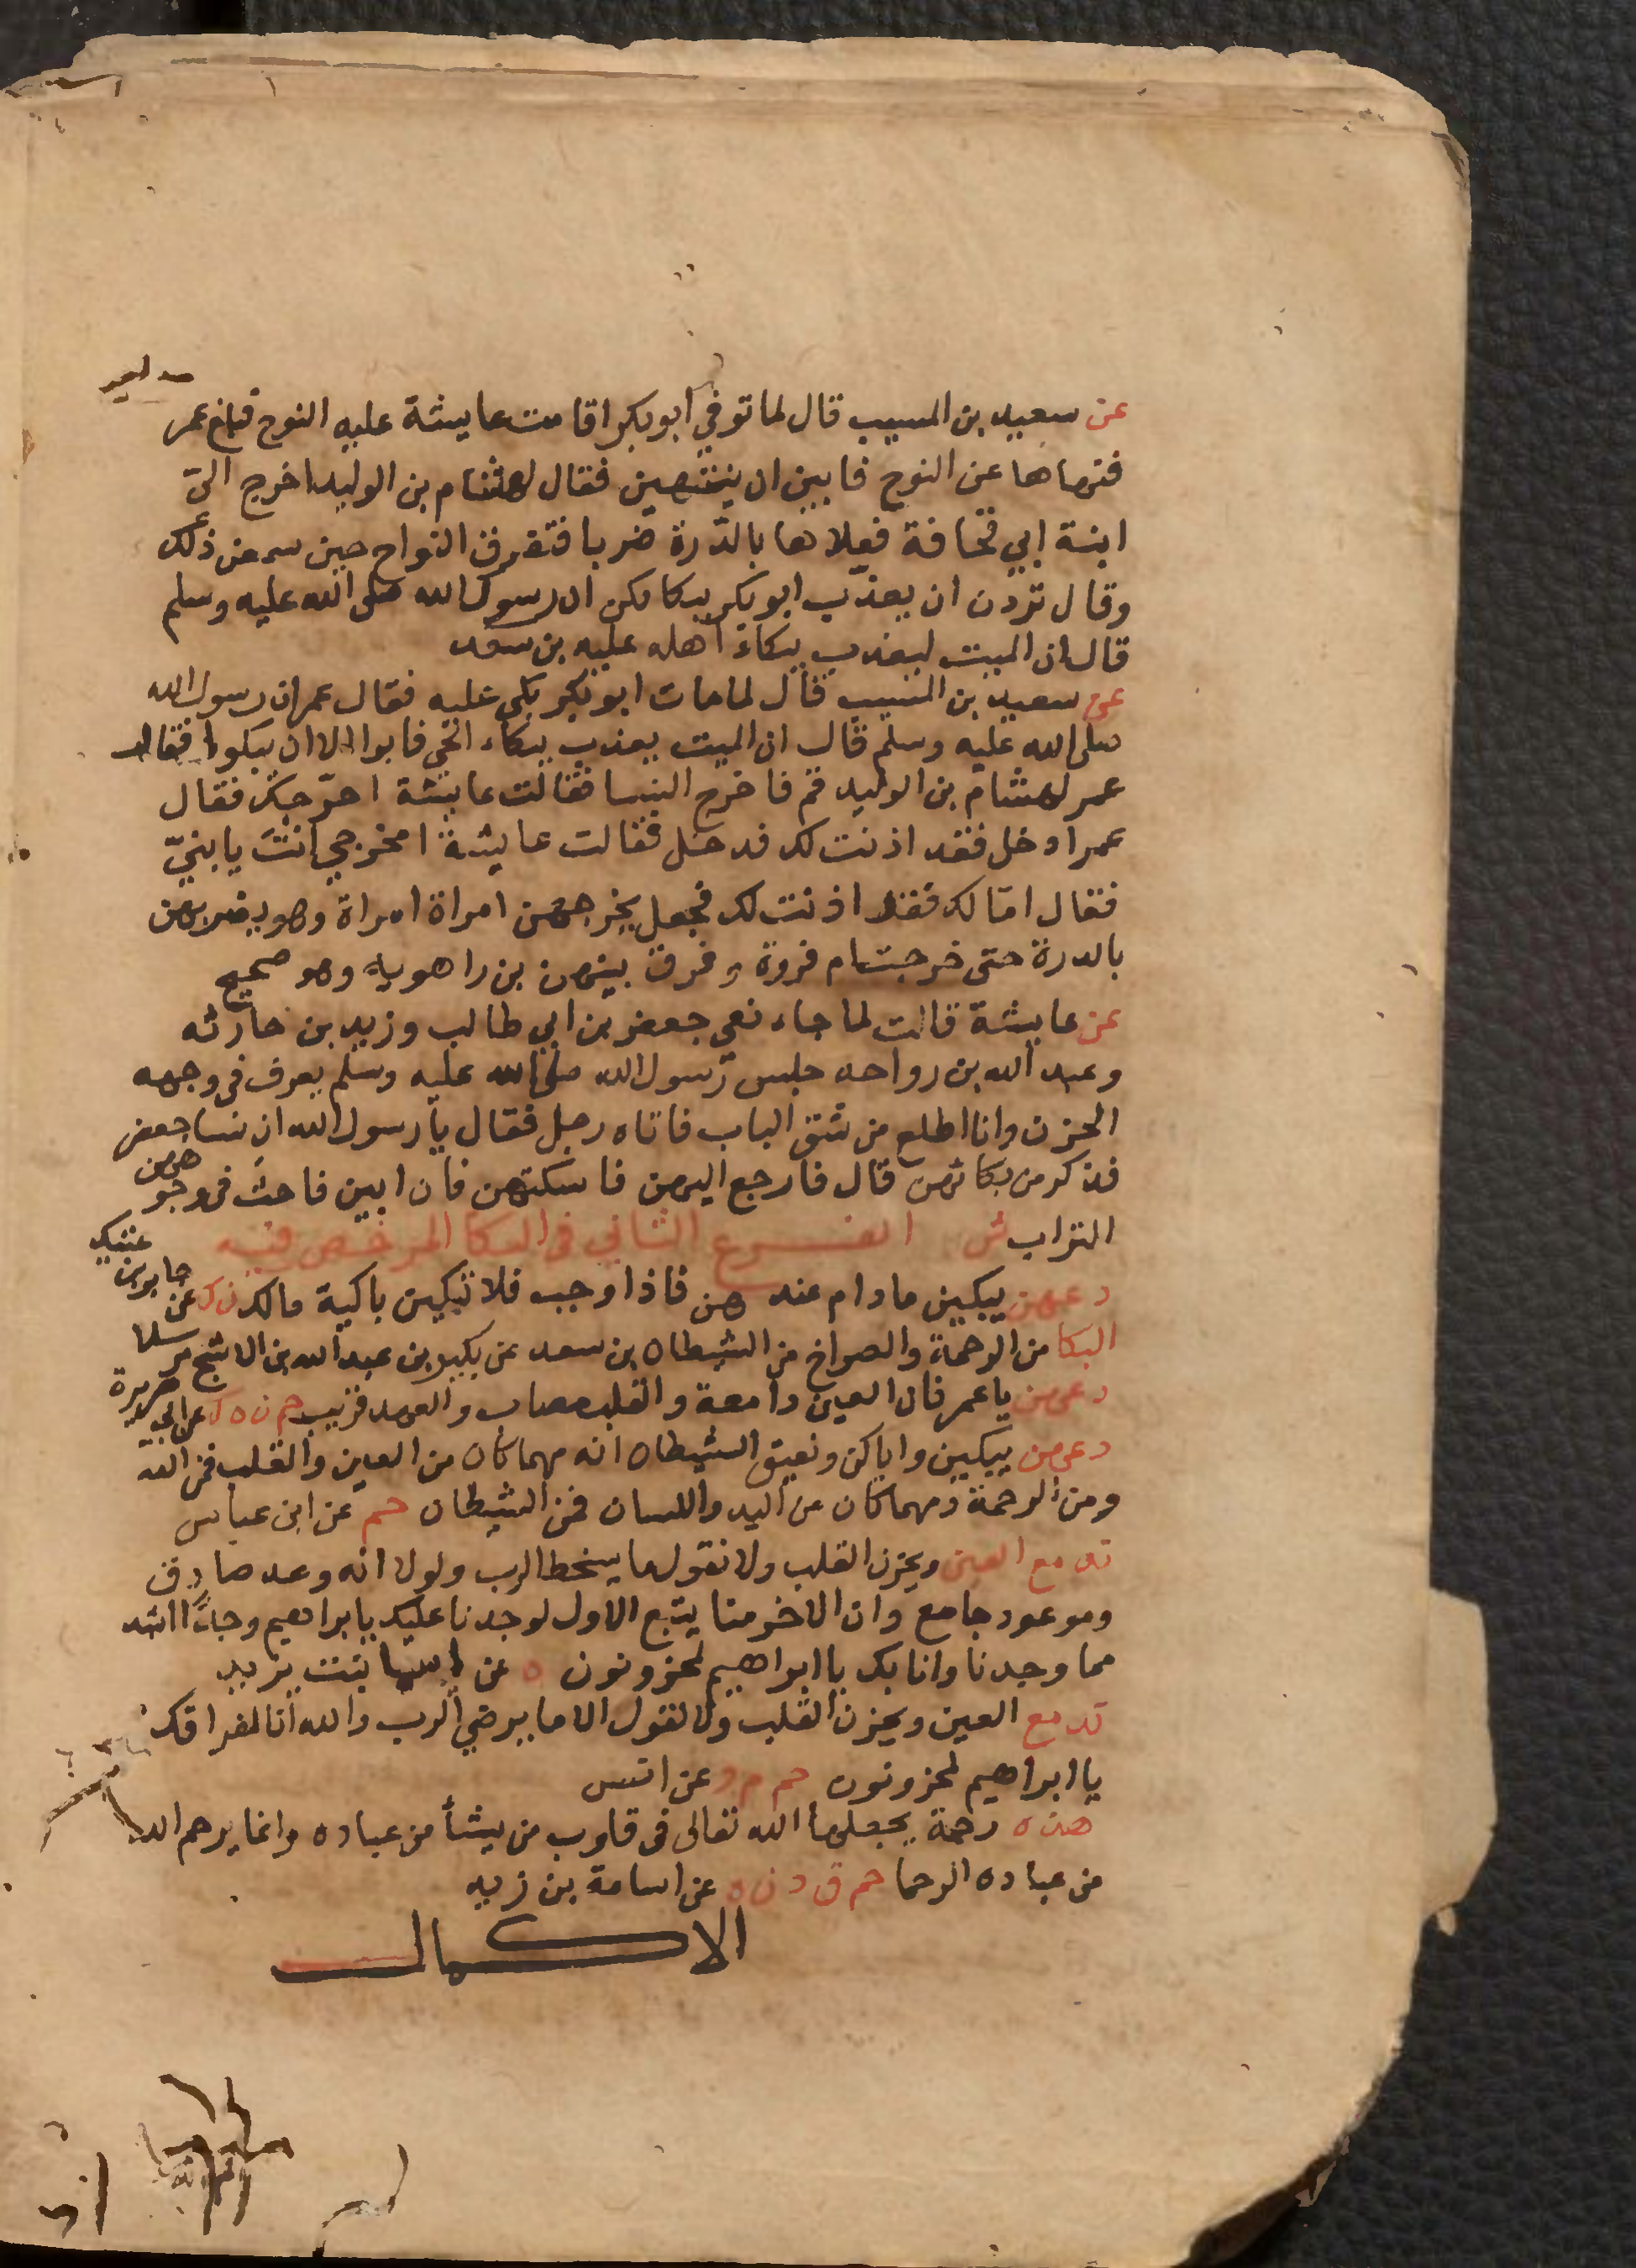 عن سعيد بن المسيب قال لما توفي ابو بكر اقامت عايشة عليه النوح فبلغ عمر
فنهاها عن النوح فابين ان ينتهين فقال لهشام بن الوليد اخرج اليّ
ابنة ابي قحافة فعلاها بالدّرة ضربا فتفرق النواح حين سمعن ذلك
وقال تردن ان يعذب ابو بكر ببكايكن ان رسول الله صلى الله عليه وسلم
قال ان الميت ليعذب ببكاء اهله عليه بن سعد
عن سعيد بن المسيب قال لما مات ابو بكر بكي عليه فقال عمر ان رسول الله
صلى الله عليه وسلم قال ان الميت يعذب ببكاء الحي فابوا الا ان يبكوا فقال
عمر لهشام بن الوليد قم فاخرج النسا فقالت عايشة احرّجك فقال
عمر ادخل فقد اذنت لك فدخل فقالت عايشة امخرجي انتَ يا بنيّ
فقال امّا لك فقد اذنت لك فجعل يخرجهن امراة امراة وهو يضربهن
بالدرة حتى خرجت ام فروة وفرق بينهن بن راهويه وهو صحيح
عن عايشة قالت لما جاء نعي جعفر بن ابي طالب وزيد بن حارثه
وعبد الله بن رواحه جلس رسول الله صلى الله عليه وسلم يعرف في وجهه
الحزن وانا اطلع من شق الباب فاتاه رجل فقال يا رسول الله ان نسا جعفر
فذكر من بكائهن قال فارجع اليهن فاسكتهن فان ابين فاحث في وجوههن
التراب ش الفرع الثاني في البكا المرخص فيه
دعهن يبكين مادام عندهن فاذا وجب فلا تبكين باكية مالك ن ك عن جابر بن عتيك
البكا من الرحمة والصراخ من الشيطان بن سعد عن بكير بن عبد الله بن الاشج مرسلا
دعهن يا عمر فان العين دامعة والقلب مصاب والعهد قريب حم ن ه ك عن ابي هريرة
دعهن يبكين واياكن ونعيق الشيطان انه مهما كان من العين والقلب فمن الله
ومن الرحمة ومهما كان من اليد واللسان فمن الشيطان حم عن ابن عباس
تدمع العين ويحزن القلب ولا نقول ما يسخط الرب ولولا انه وعد صادق
وموعود جامع وان الاخر منا يتبع الاول لوجدنا عليك يا ابراهيم وجدًا اشد
مما وجدنا وانا بك يا ابراهيم لمحزونون ه عن اسما بنت يزيد
تدمع العين ويحزن القلب ولا نقول الا ما يرضي الرب والله انا لفراقك
يا ابراهيم لمحزونون حم م د عن انس
هذه رحمة يجعلها الله تعالى في قلوب من يشأ من عباده وانما يرحم الله
من عباده الرحما حم ق د ن ه عن اسامة بن زيد
الاكمال